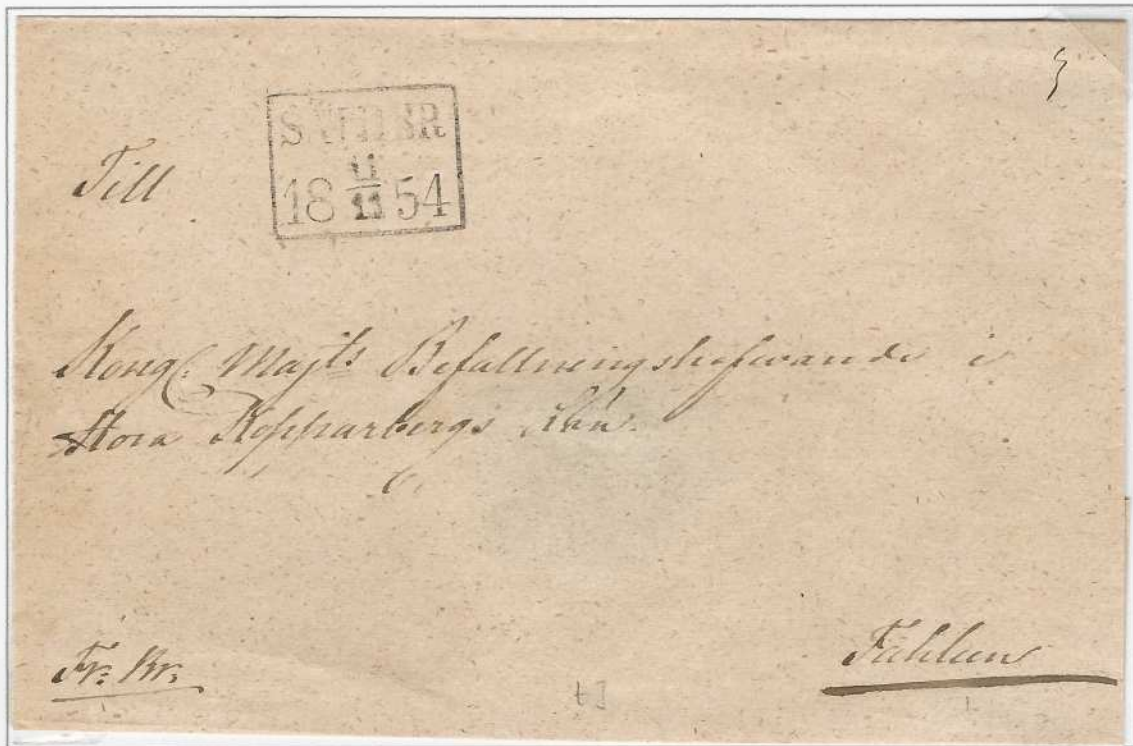 SÄTHER
18 11/11 54
Till
Kongl. Majts Befallningshafwande i
Stora Kopparbergs Län.
Fr: Br:
Fahlun